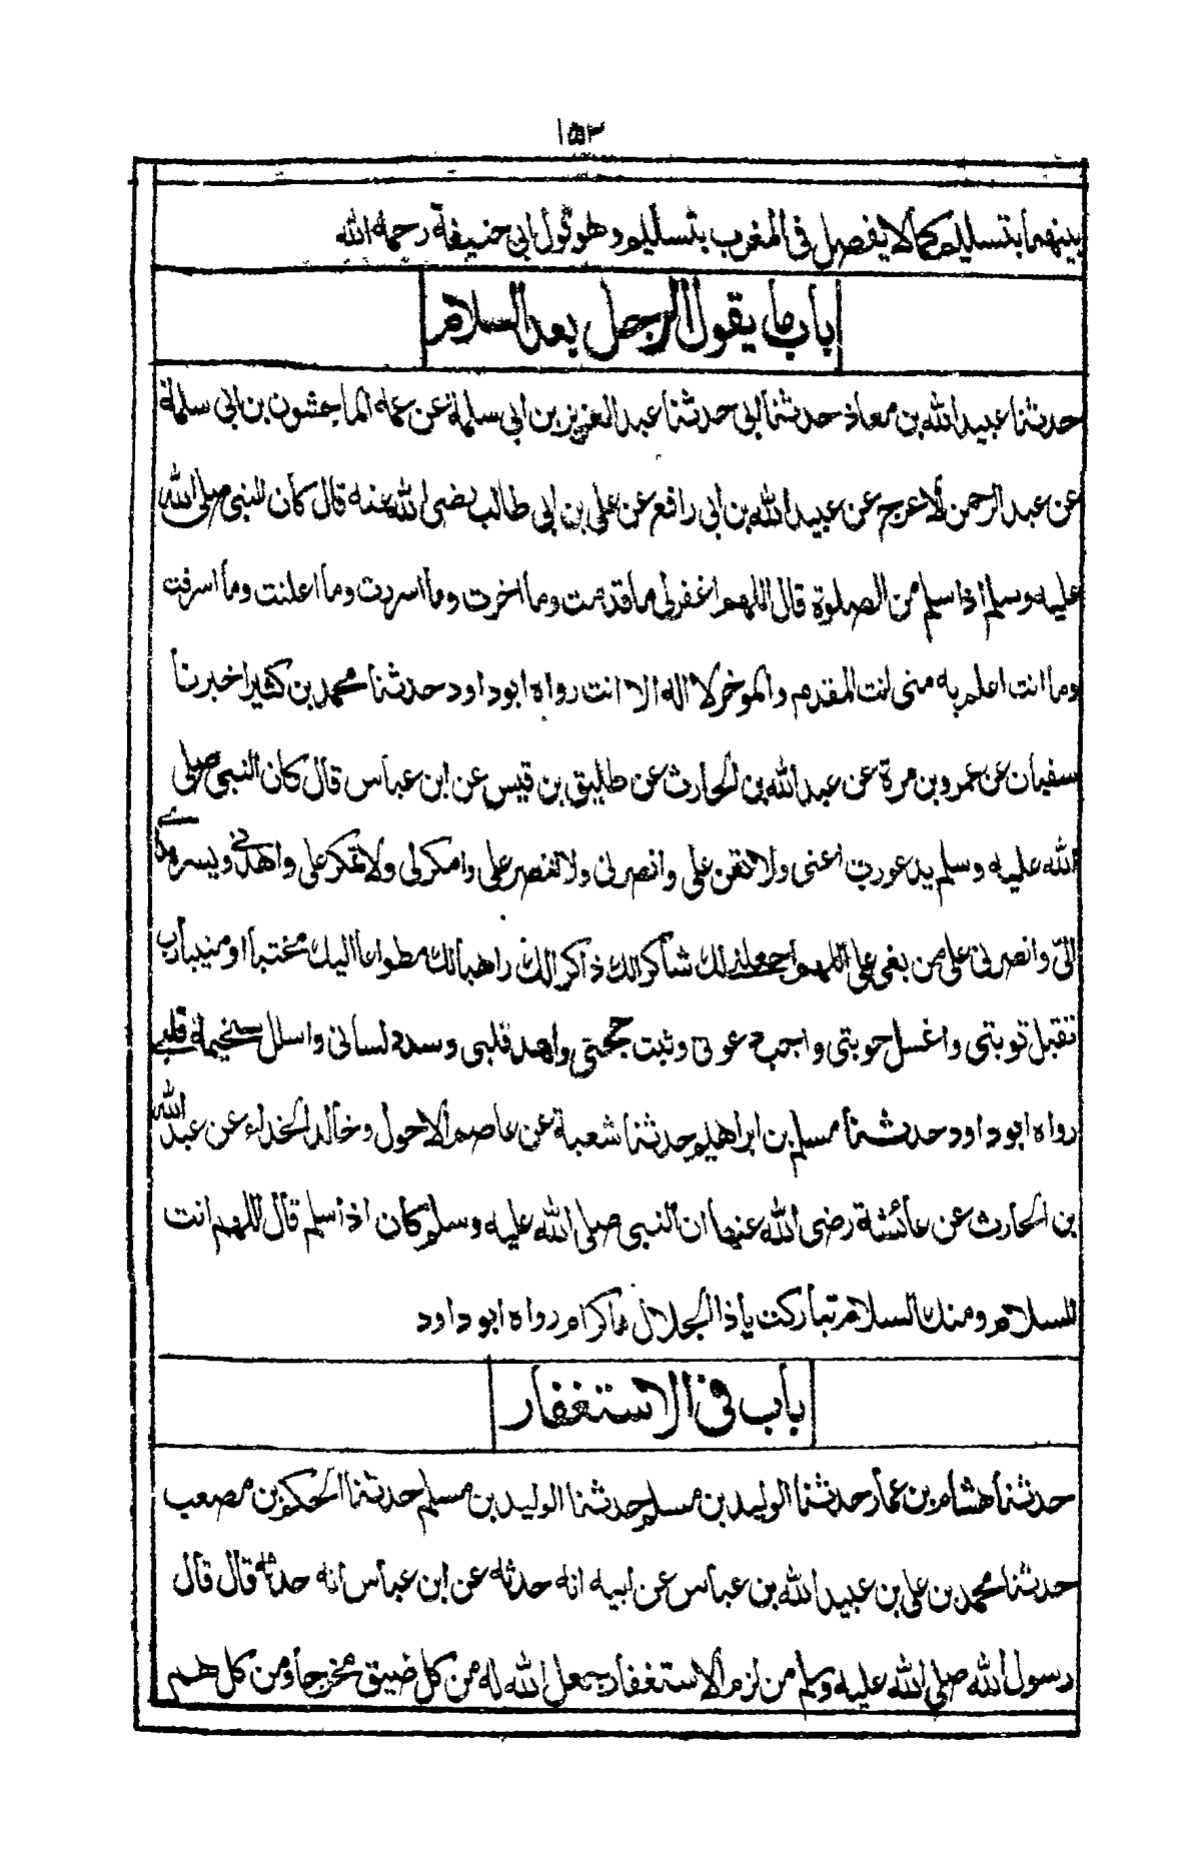 ١٥٣
بينهما بتسليم كما لا يفصل في المغرب بتسليم وهو قول ابي حنيفة رحمه الله
باب ما يقول الرجل بعد السلام
حدثنا عبيد الله بن معاذ حدثنا ابي حدثنا عبد العزيز بن ابي سلمة عن عمه الماجشون بن ابي سلمة
عن عبد الرحمن الاعرج عن عبيد الله بن ابي رافع عن علي بن ابي طالب رضى الله عنه قال كان النبي صلى الله
عليه وسلم اذا سلم من الصلوة قال اللهم اغفرلي ما قدمت وما اخرت وما اسررت وما اعلنت وما اسرفت
وما انت اعلم به مني انت المقدم والموخر لا اله الا انت رواه ابوداود حدثنا محمد بن كثير اخبرنا
سفيان عن عمرو بن مرة عن عبد الله بن الحارث عن طليق بن قيس عن ابن عباس قال كان النبي صلى
الله عليه وسلم يدعو رب اعني ولا تعن علي وانصرني ولا تنصر علي وامكرلي ولا تمكر علي واهدني ويسر هداي
الي وانصرني على من بغى علي اللهم اجعلني لك شاكرا لك ذاكرا لك راهبا لك مطواعا اليك مخبتا او منيبا رب
تقبل توبتي واغسل حوبتي واجب دعوتي وثبت حجتي واهد قلبي وسدد لساني واسلل سخيمة قلبي
رواه ابوداود حدثنا مسلم بن ابراهيم حدثنا شعبة عن عاصم الاحول وخالد الحذاء عن عبد الله
بن الحارث عن عائشة رضى الله عنها ان النبي صلى الله عليه وسلم كان اذا سلم قال اللهم انت
السلام ومنك السلام تباركت ياذا الجلال والاكرام رواه ابوداود
باب في الاستغفار
حدثنا هشام بن عمار حدثنا الوليد بن مسلم حدثنا الوليد بن مسلم حدثنا الحكم بن مصعب
حدثنا محمد بن علي بن عبيد الله بن عباس عن ابيه انه حدثه عن ابن عباس انه حدثه قال قال
رسول الله صلى الله عليه وسلم من لزم الاستغفار جعل الله له من كل ضيق مخرجا ومن كل هم